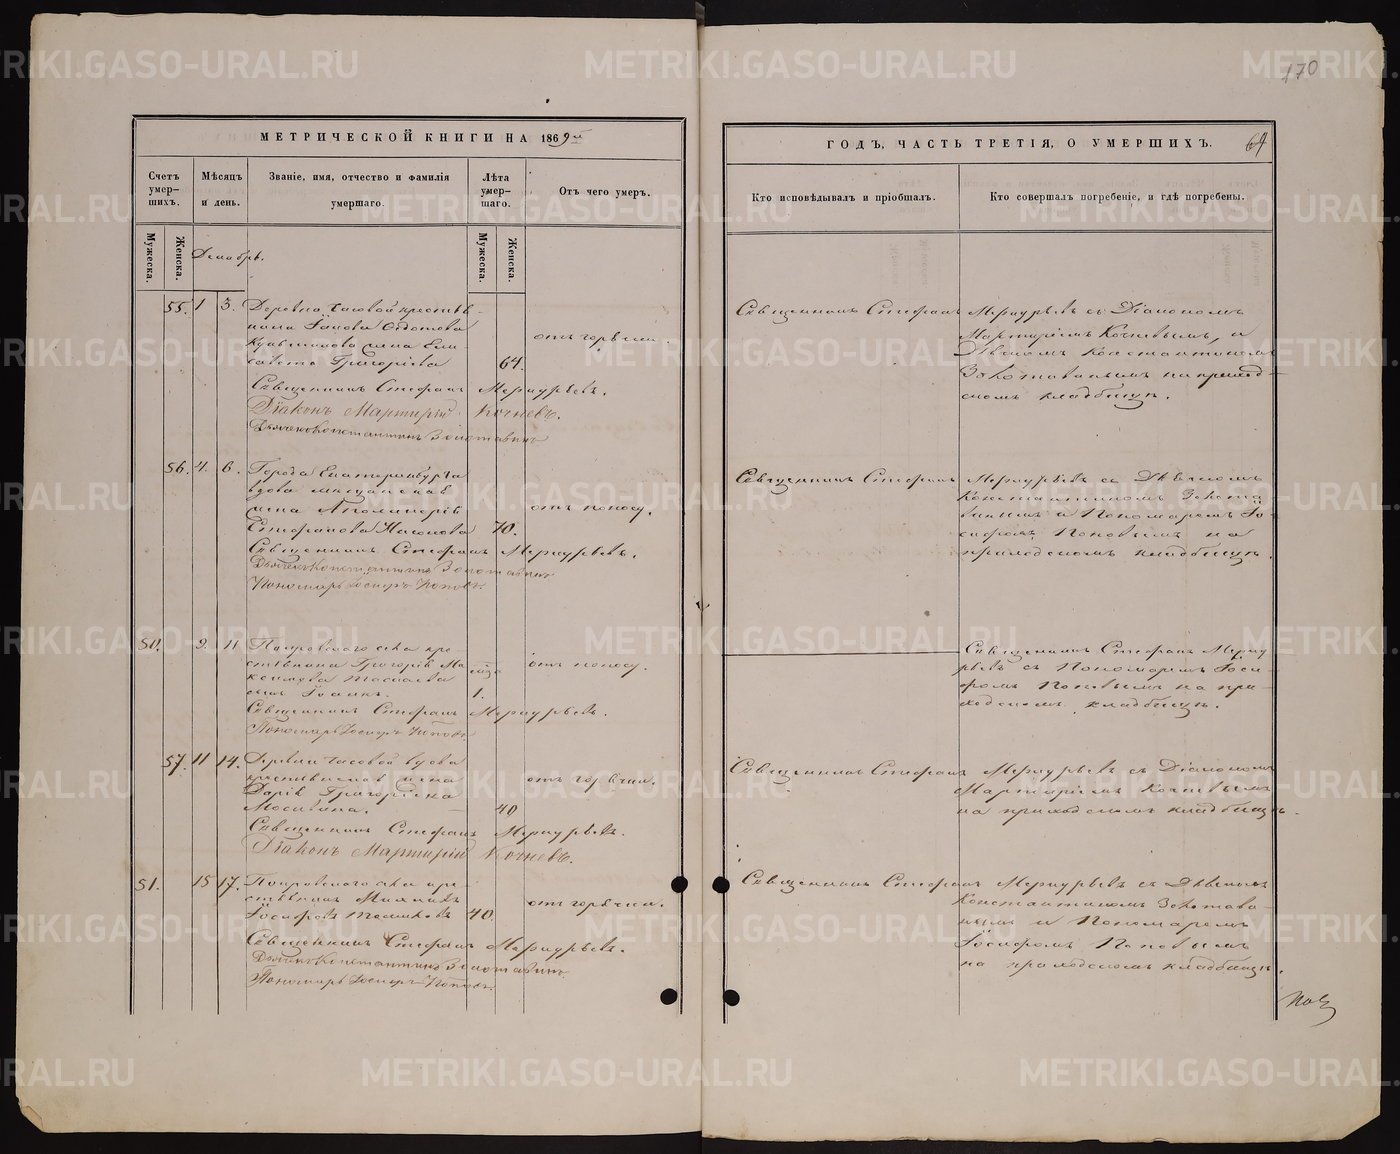 170
МЕТРИЧЕСКОЙ КНИГИ НА 1869
ГОДЪ, ЧАСТЬ ТРЕТІЯ, О УМЕРШИХЪ.
64
Счетъ умер-
шихъ.
Мѣсяцъ
и день.
Званіе, имя, отчество и фамилія
умершаго.
Лѣта
умер-
шаго.
Отъ чего умеръ.
Кто исповѣдывалъ и пріобщалъ.
Кто совершалъ погребеніе, и гдѣ погребены.
Мужеска.
Женска.
Декабрь.
Мужеска.
Женска.
55. 1 3. Деревни Часовой крестья-
нина Іакова Ѳедотова
жена Ели
савета Григоріева 64.
отъ горячки.
Священникъ Стефанъ Меркурьевъ.
Діаконъ Мартирій Кочневъ.
Дьячекъ Константинъ Золотавинъ
Священникъ Стефанъ Меркурьевъ съ Діакономъ
Мартиріемъ Кочневымъ, и
Дьячкомъ Константиномъ
Золотавинымъ на приход-
скомъ кладбищѣ.
56. 4. 6. Города Екатеринбурга
вдова мещанская
жена
Стефанова 70.
отъ поносу.
Священникъ Стефанъ Меркурьевъ.
Дьячекъ Константинъ Золотавинъ
Пономарь Іосифъ Поповъ.
Священникъ Стефанъ Меркурьевъ съ Дьячкомъ
Константиномъ Золота
винымъ и Пономаремъ Іо-
сифомъ Поповымъ на
приходскомъ кладбищѣ.
50. 9. 11. Покровскаго села кре-
стьянина Григорія Ма
ксимова
сынъ Іоаннъ. 1.
отъ поносу.
Священникъ Стефанъ Меркурьевъ.
Пономарь Іосифъ Поповъ.
Священникъ Стефанъ Мерку
рьевъ съ Пономаремъ Іоси-
фомъ Поповымъ на при-
ходскомъ кладбищѣ.
57. 11 14. Деревни Часовой вдова
крестьянская жена
Дарія Григоріева
Москвина. 40
отъ горячки.
Священникъ Стефанъ Меркурьевъ.
Діаконъ Мартирій Кочневъ.
Священникъ Стефанъ Меркурьевъ съ Діакономъ
Мартиріемъ Кочневымъ
на приходскомъ кладбищѣ.
51. 15 17. Покровскаго села кре-
стьянинъ
Іосифовъ 40.
отъ горячки.
Священникъ Стефанъ Меркурьевъ.
Дьячекъ Константинъ Золотавинъ.
Пономарь Іосифъ Поповъ.
Священникъ Стефанъ Меркурьевъ съ Дьячкомъ
Константиномъ Золотави-
нымъ и Пономаремъ
Іосифомъ Поповымъ
на приходскомъ кладбищѣ.
METRIKI.GASO-URAL.RU